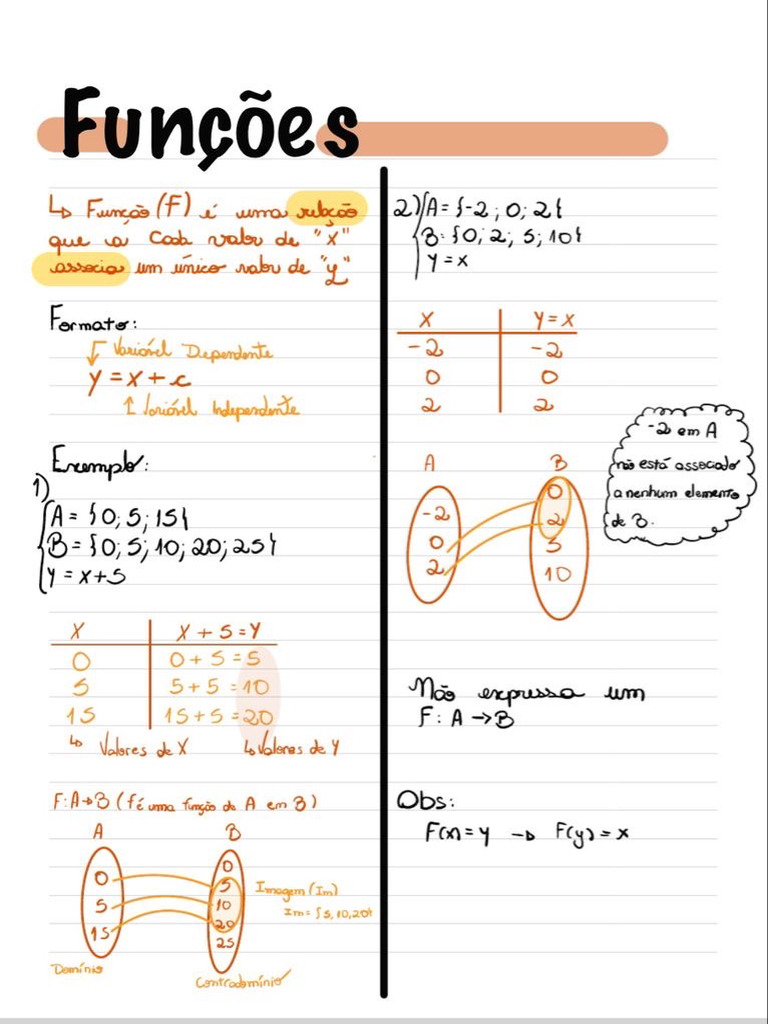 Funções
↳ Função (F) é uma relação
que a cada valor de "x"
associa um único valor de "y"
Formato:
Variável Dependente
y = x + c
Variável Independente
Exemplo:
1)
A = {0; 5; 15}
B = {0; 5; 10; 20; 25}
y = x+5
X | X + 5 = Y
0 | 0 + 5 = 5
5 | 5 + 5 = 10
15 | 15 + 5 = 20
↳ Valores de X ↳ Valores de Y
F: A→B (f é uma função de A em B)
A B
0
5
15
0
5
10
20
25
Imagem (Im)
Im = {5, 10, 20}
Domínio
Contradomínio
2) A = {-2; 0; 2}
B = {0; 2; 5; 10}
Y = x
X | Y = x
-2 | -2
0 | 0
2 | 2
A B
-2
0
2
0
2
5
10
-2 em A
não está associado
a nenhum elemento
de B.
Não expressa um
F: A → B
Obs:
F(x) = y → F(y) = x